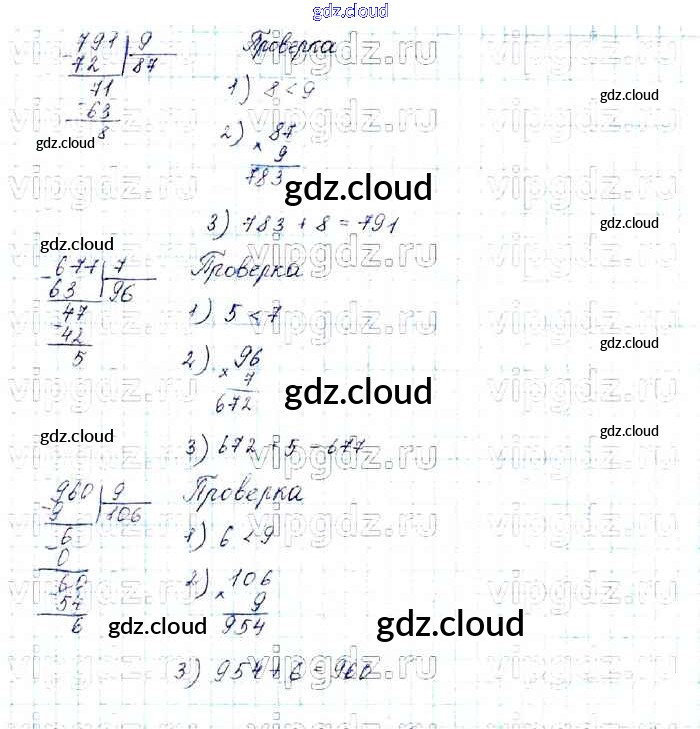 gdz.cloud
791 | 9
- 72 | 87
71
- 63
8
Проверка
1) 8 < 9
2) 87
× 9
783
3) 783 + 8 = 791
gdz.cloud
gdz.cloud
gdz.cloud
gdz.cloud
gdz.cloud
677 | 7
- 63 | 96
47
- 42
5
Проверка
1) 5 < 7
2) 96
× 7
672
3) 672 + 5 = 677
gdz.cloud
gdz.cloud
gdz.cloud
gdz.cloud
960 | 9
- 9 | 106
6
- 0
60
- 54
6
Проверка
1) 6 < 9
2) 106
× 9
954
3) 954 + 6 = 960
gdz.cloud
gdz.cloud
vipgdz.ru